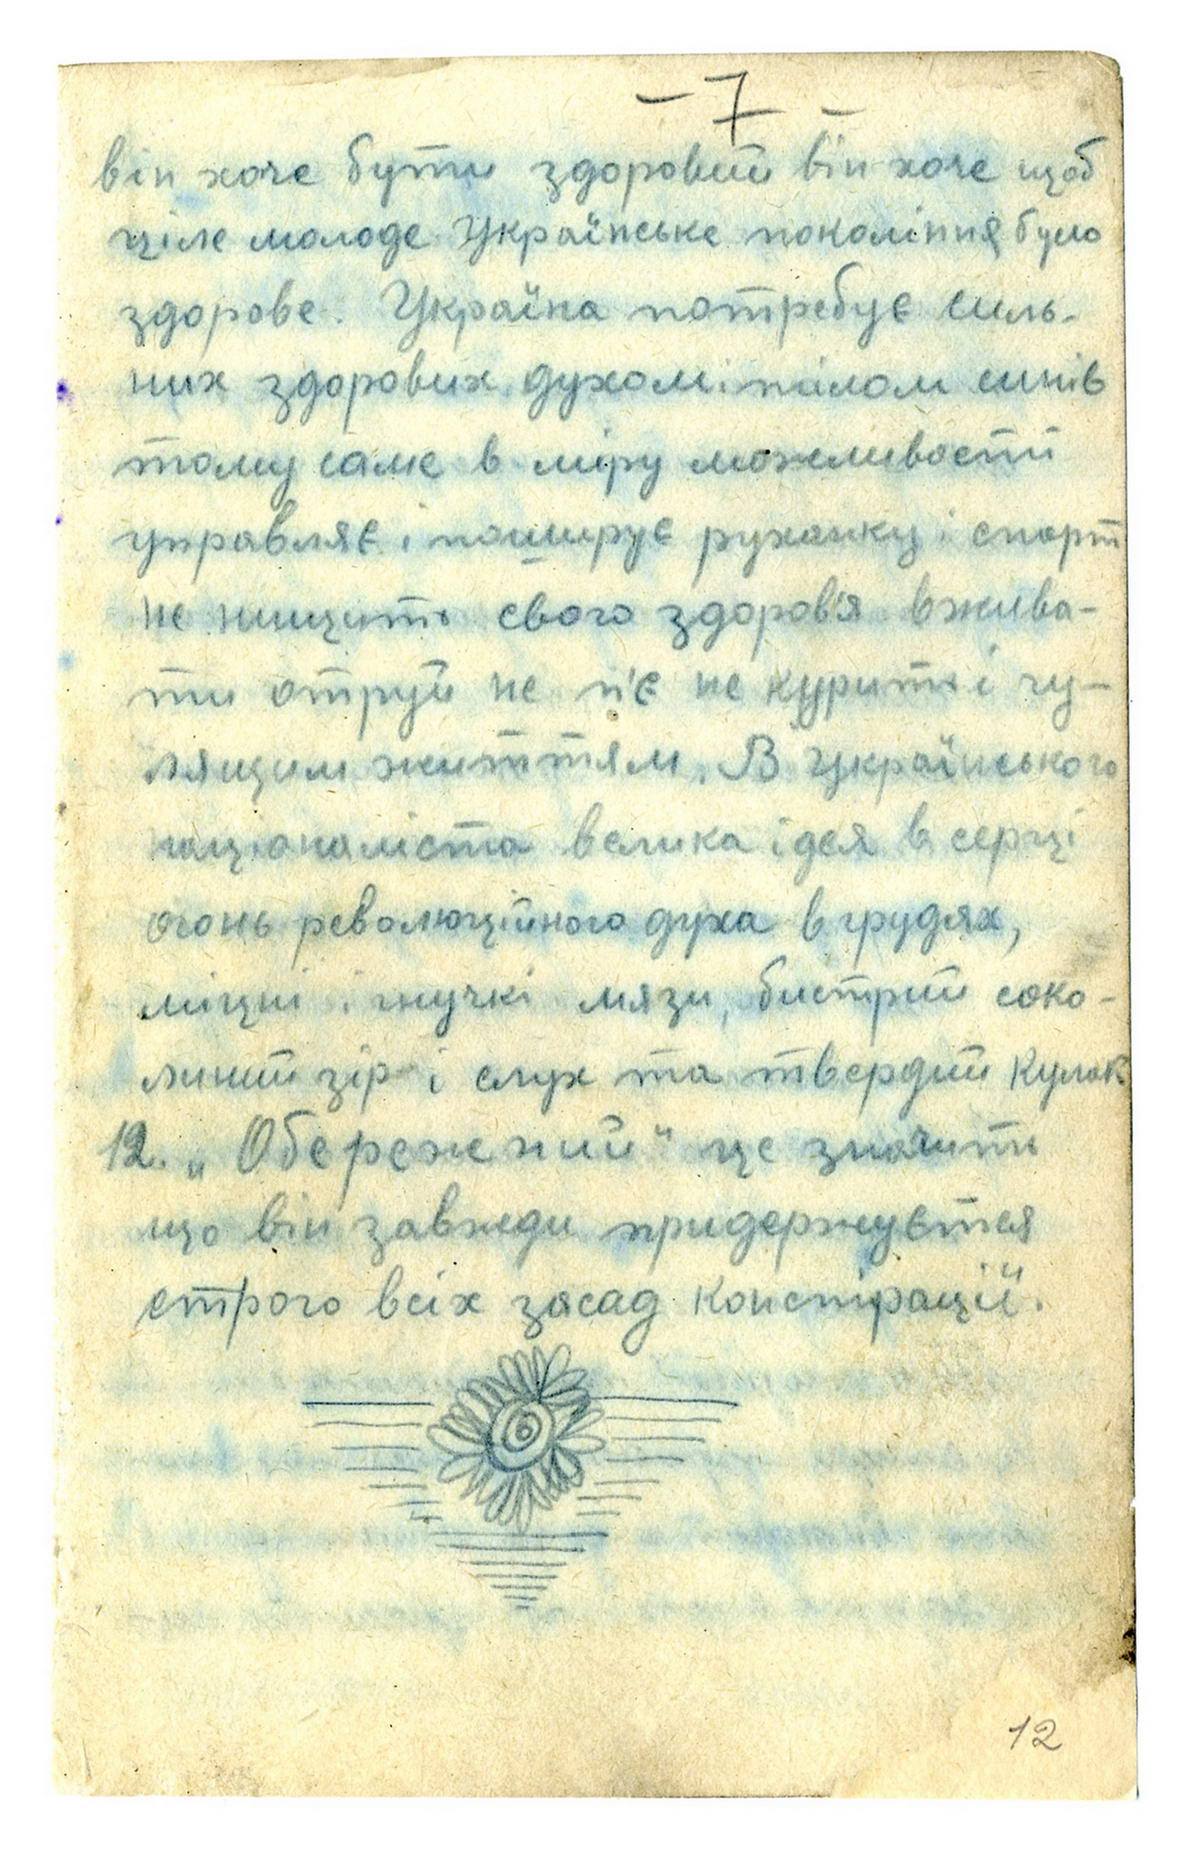 – 7 –
він хоче бути здоровий він хоче щоб
ціле молоде Українське покоління було
здорове. Україна потребує силь-
них здорових духом і тілом синів
тому саме в міру можливости
управляє і поширує руханку і спорт
не нищить свого здоров'я вжива-
ти отруй не п'є не курить і гу-
лящим життям. В Українського
націоналіста велика ідея в серці
огонь революційного духа в грудях,
міцні і гнучкі мязи, бистрий соко-
линий зір і слух та твердий кулак
12. „Обережний" це значить
що він завжди придержується
строго всіх засад конспірації.
12